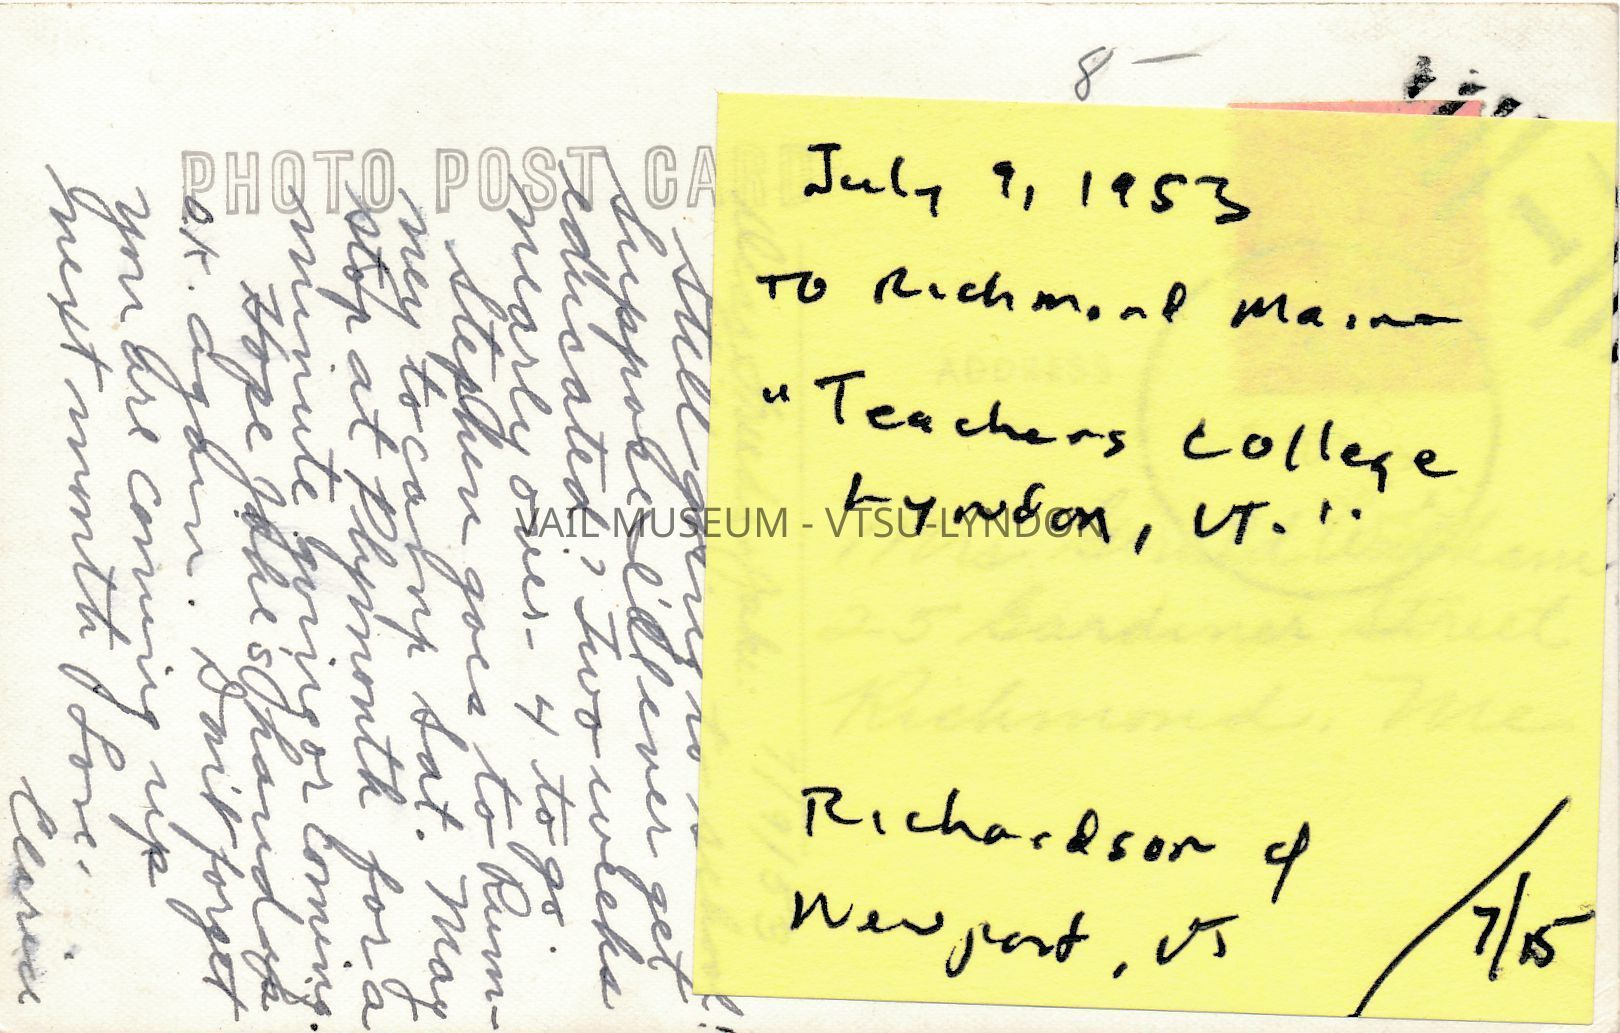 8 —
PHOTO POST CARD
Still going to school!
Suppose I'll ever get
educated? Two weeks
nearly over - 4 to go.
Stephen goes to Rum-
ney to camp Sat. May
stop at Plymouth for a
minute going or coming.
Hope John's hand is
o.k. again. Don't forget
you are coming up
next month. Love,
July 9, 1953
To Richmond Maine
"Teachers College
Lyndon, VT."
Richardson of
Newport, VT
7/15
ADDRESS
25 Gardiner Street
Richmond, Me.
7/9/53
VAIL MUSEUM - VTSU-LYNDON